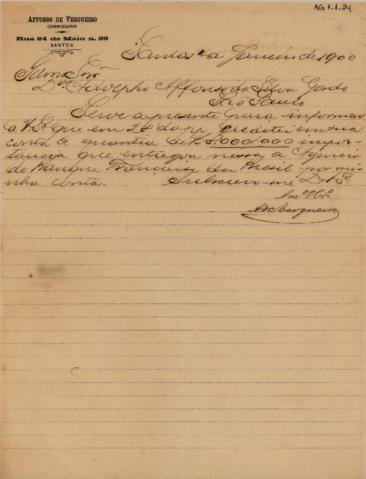 AG 1.1.34
AFFONSO DE VERGUEIRO
COMMISSARIO
Rua 24 de Maio n. 29
SANTOS
Santos de Janeiro de 1900
Illmo Snr
Dr. Adolpho Affonso da Silva Gordo
São Paulo
Serve a presente para informar
a V.Sª que em 24 do pp. creditei em sua
conta a quantia de 000.000 impor-
tancia que entregou nessa a Agencia
do Banque Française du Brésil por mi-
nha conta. Subscrevo-me De V.Sª
Amº
Vergueiro